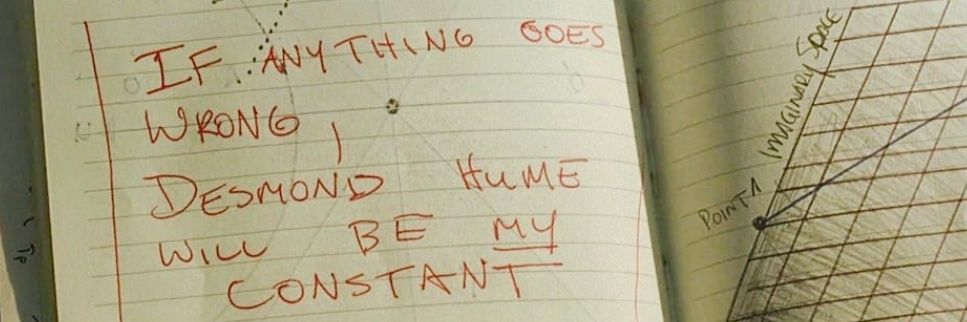 IF ANYTHING GOES
WRONG,
DESMOND HUME
WILL BE MY
CONSTANT
IMAGINARY SPACE
POINT 1